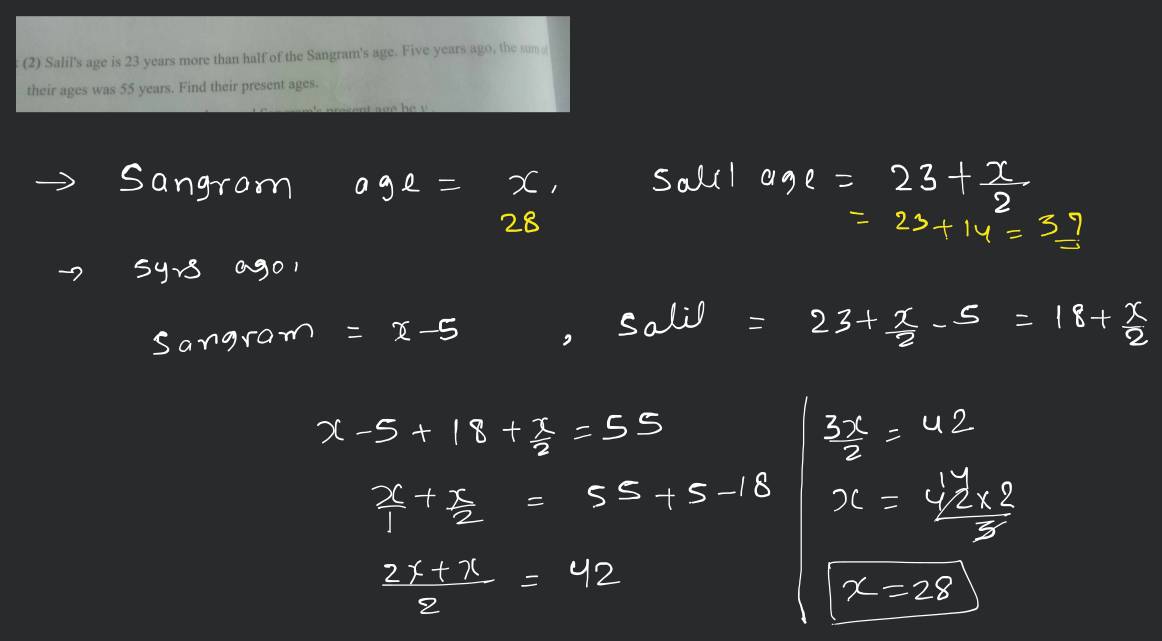 (2) Salil's age is 23 years more than half of the Sangram's age. Five years ago, the sum of
their ages was 55 years. Find their present ages.
present age be y
→ Sangram age = x, Salil age = 23 + x/2
28 = 23 + 14 = 37
→ 5yrs ago,
Sangram = x - 5 , Salil = 23 + x/2 - 5 = 18 + x/2
x - 5 + 18 + x/2 = 55
x/1 + x/2 = 55 + 5 - 18
2x + x / 2 = 42
3x/2 = 42
x = 42 x 2 / 3
14
x = 28